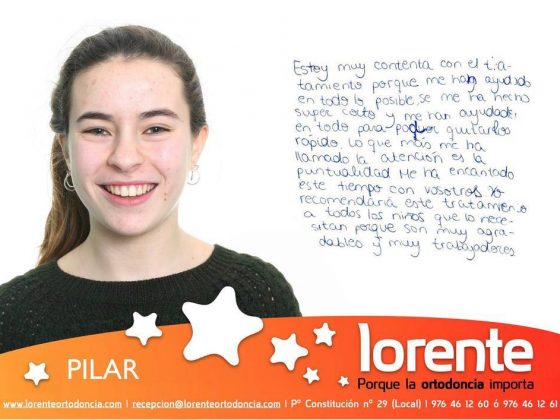 Estoy muy contenta con el tra-
tamiento porque me han ayudado
en todo lo posible, se me ha hecho
super corto y me han ayudado
en todo para poder quitarlos
rápido. Lo que más me ha
llamado la atención es la
puntualidad. Me ha encantado
este tiempo con vosotros. Yo
recomendaría este tratamiento
a todos los niños que lo nece-
sitan porque son muy agra-
dables y muy trabajadores
PILAR
lorente
Porque la ortodoncia importa
www.lorenteortodoncia.com | recepcion@lorenteortodoncia.com | Pº Constitución nº 29 (Local) | 976 46 12 60 ó 976 46 12 61